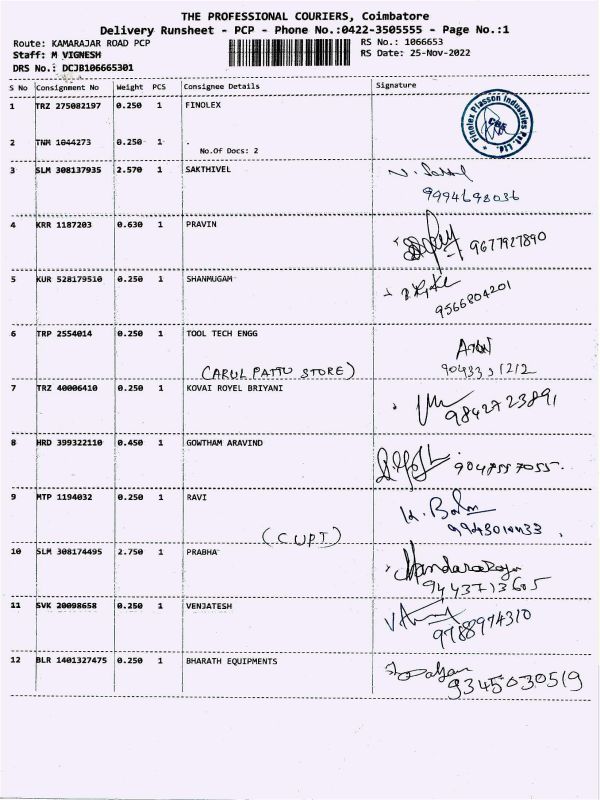 THE PROFESSIONAL COURIERS, Coimbatore
Delivery Runsheet - PCP - Phone No.:0422-3505555 - Page No.:1
Route: KAMARAJAR ROAD PCP
RS No.: 1066653
Staff: M VIGNESH
RS Date: 25-Nov-2022
DRS No.: DCJB106665301
S No Consignment No Weight PCS Consignee Details Signature
1 TRZ 275082197 0.250 1 FINOLEX
Finolex Plasson Industries Pvt. Ltd.
CBE
2 TNM 1044273 0.250 1 .
No.Of Docs: 2
3 SLM 308137935 2.570 1 SAKTHIVEL
9994698036
4 KRR 1187203 0.630 1 PRAVIN
9677927890
5 KUR 528179510 0.250 1 SHANMUGAM
9566804201
6 TRP 2554014 0.250 1 TOOL TECH ENGG
(ARUL PATTU STORE) 9043331212
7 TRZ 40006410 0.250 1 KOVAI ROYEL BRIYANI
9842723891
8 HRD 399322110 0.450 1 GOWTHAM ARAVIND
9047557055
9 MTP 1194032 0.250 1 RAVI
(CUPT)
10 SLM 308174495 2.750 1 PRABHA
9443713605
11 SVK 20098658 0.250 1 VENJATESH
9788974310
12 BLR 1401327475 0.250 1 BHARATH EQUIPMENTS
9345030519